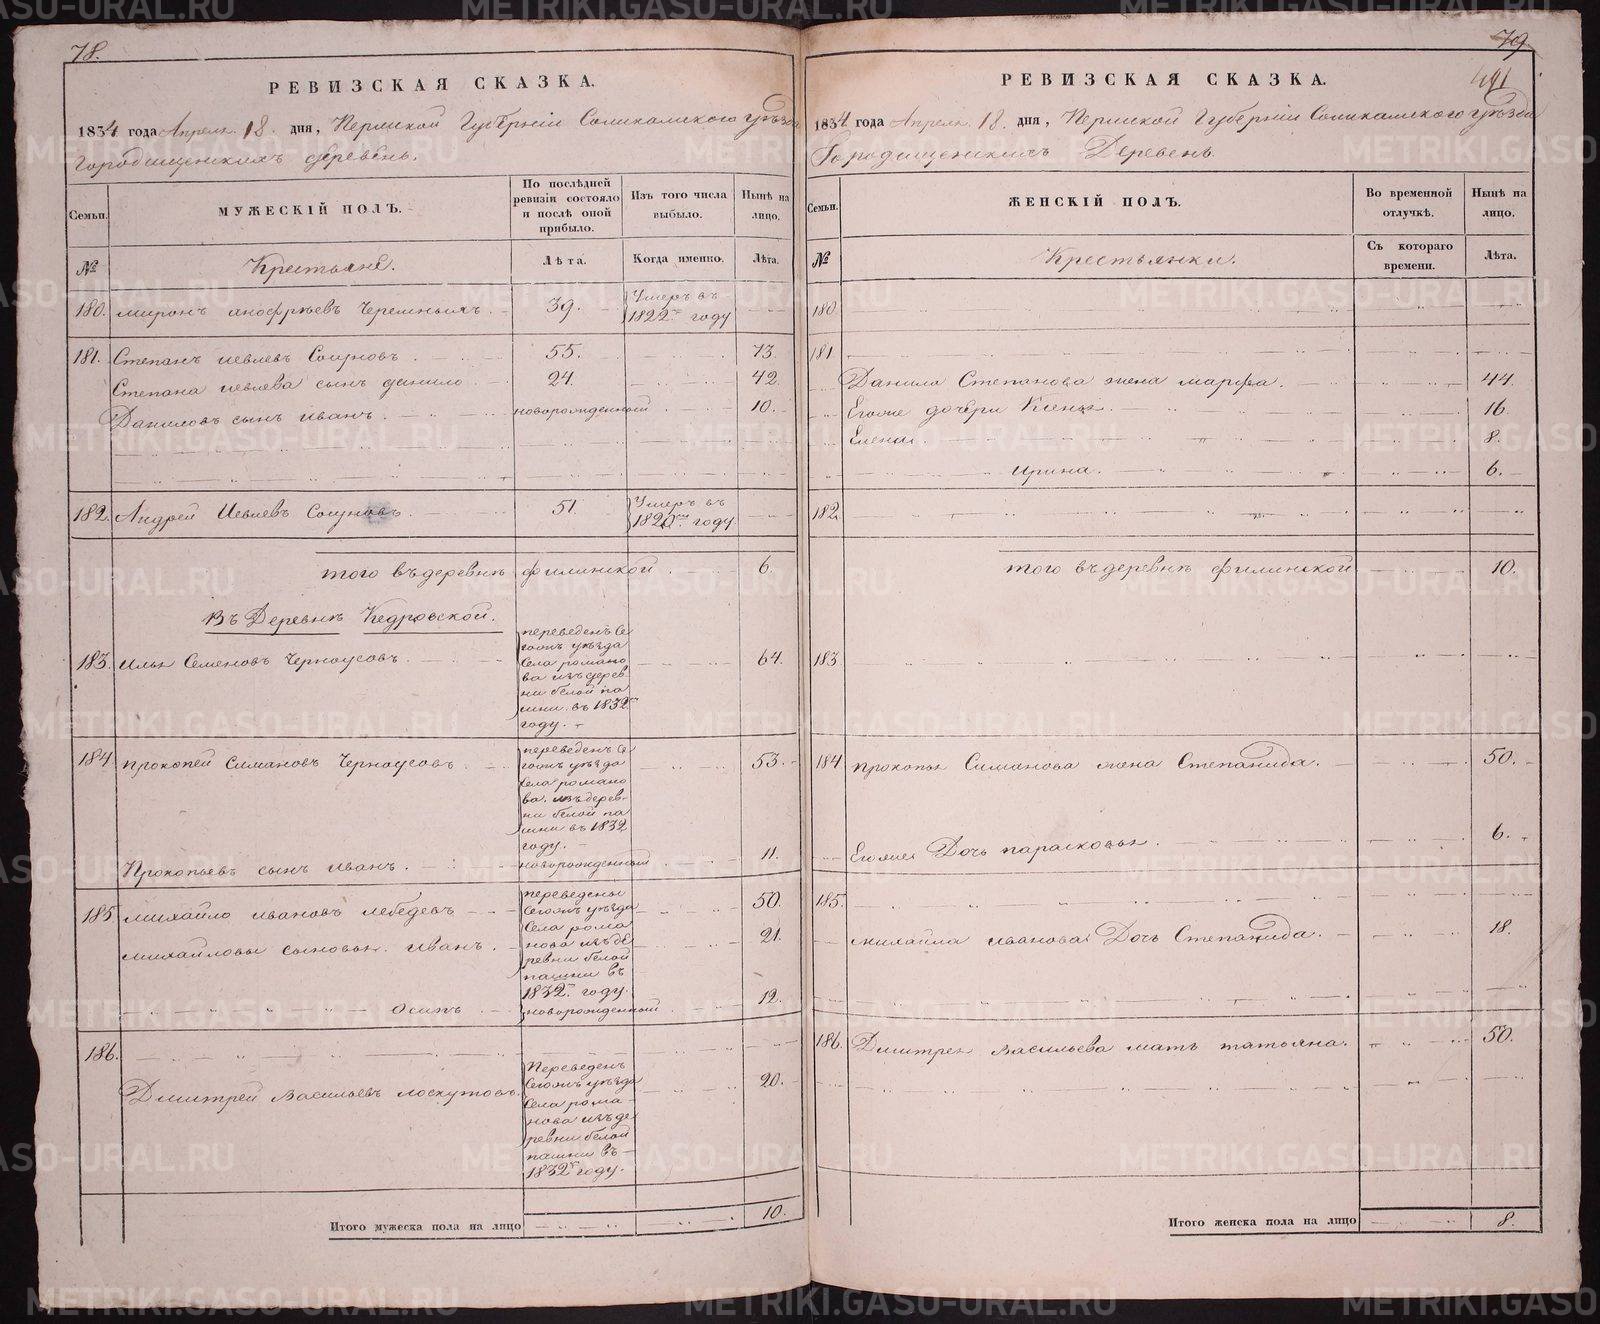 78.
РЕВИЗСКАЯ СКАЗКА.
1834 года Апреля 18. дня, Пермской Губерніи Соликамскаго уѣзда
Городищенскихъ деревень.
Семьи.
МУЖЕСКІЙ ПОЛЪ.
По послѣдней ревизіи состояло и послѣ оной прибыло.
Изъ того числа выбыло.
Нынѣ на лицо.
№
Крестьяне.
Лѣта.
Когда именно.
Лѣта.
180. Миронъ Анофрѣевъ 39. Умеръ въ
1822мъ году
181. Степанъ Иевлевъ 55. 73.
Степана Иевлева сынъ Данило 24. 42.
Даниловъ сынъ Иванъ новорожденный 10.
182. Андрей Иевлевъ 51. Умеръ въ
1820мъ году
того въ деревнѣ Филинской 6.
Въ Деревнѣ Кедровской.
183. Илья Семеновъ Черноусовъ 64.
переведенъ Се
гожъ уѣзда
Села Романо
ва изъ дерев
ни белой па
шни въ 1832мъ
году.
184. Прокопей Симановъ Черноусовъ 53.
переведенъ Се
гожъ уѣзда
Села Романо
ва. изъ дерев-
ни белой па
шни въ 1832
году.
Прокопьевъ сынъ Иванъ. новорожденный 11.
185. Михайло Ивановъ Лебедевъ 50.
Михайловы сыновья. Иванъ. 21.
переведены
Сегожъ уѣзда
Села Рома
нова изъ де
ревни белой
пашни въ
1832мъ году.
Осипъ новорожденный 12.
186.
Дмитрей Васильевъ Лоскутовъ. 20.
Переведенъ
Сегожъ уѣзда
Села Рома
нова изъ де
ревни белой
пашни въ
1832мъ году.
Итого мужеска пола на лицо 10.
79.
РЕВИЗСКАЯ СКАЗКА.
1834 года Апреля 18. дня, Пермской Губерніи Соликамскаго уѣзда
Городищенскихъ Деревень.
Семьи.
ЖЕНСКІЙ ПОЛЪ.
Во временной отлучкѣ.
Нынѣ на лицо.
№
Крестьянки.
Съ котораго времени.
Лѣта.
180
181
Данила Степанова жена Марфа. 44.
Егоже дочери 16.
Елена. 8.
Ирина. 6.
182
того въ деревнѣ Филинской 10.
183
184 Прокопья Симанова жена Степанида. 50.
Егоже Дочь Парасковья. 6.
185.
Михайла Иванова Дочь Степанида. 18.
186. Дмитрея Васильева мать Татьяна. 50.
Итого женска пола на лицо 8.
METRIKI.GASO-URAL.RU